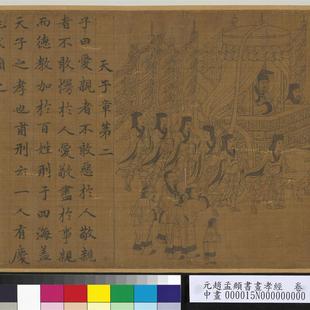 天子章第二
子曰愛親者不敢惡於人敬親
者不敢慢於人愛敬盡於事親
而德教加於百姓刑于四海蓋
天子之孝也甫刑云一人有慶
元趙孟頫書畫孝經 卷
中畫 000015N000000000